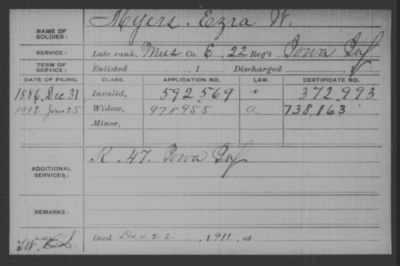 Myers. Ezra W.
NAME OF SOLDIER:
SERVICE: Late rank, Mus Co. E, 22 Reg't Iowa Inf
TERM OF SERVICE: Enlisted , 1 Discharged , 1
DATE OF FILING. CLASS. APPLICATION NO. LAW. CERTIFICATE NO.
1886, Dec 31 Invalid, 592,569 372,993
1912 Jan 25 Widow, 978955 738,163
Minor,
ADDITIONAL SERVICES: K. 47. Iowa Inf
REMARKS:
Died Dec 22, 1911, at